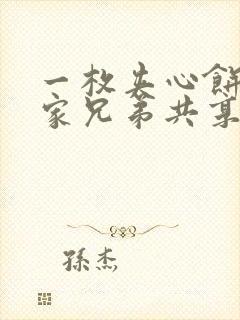 一枚夹心餅
家兄弟共
孫杰